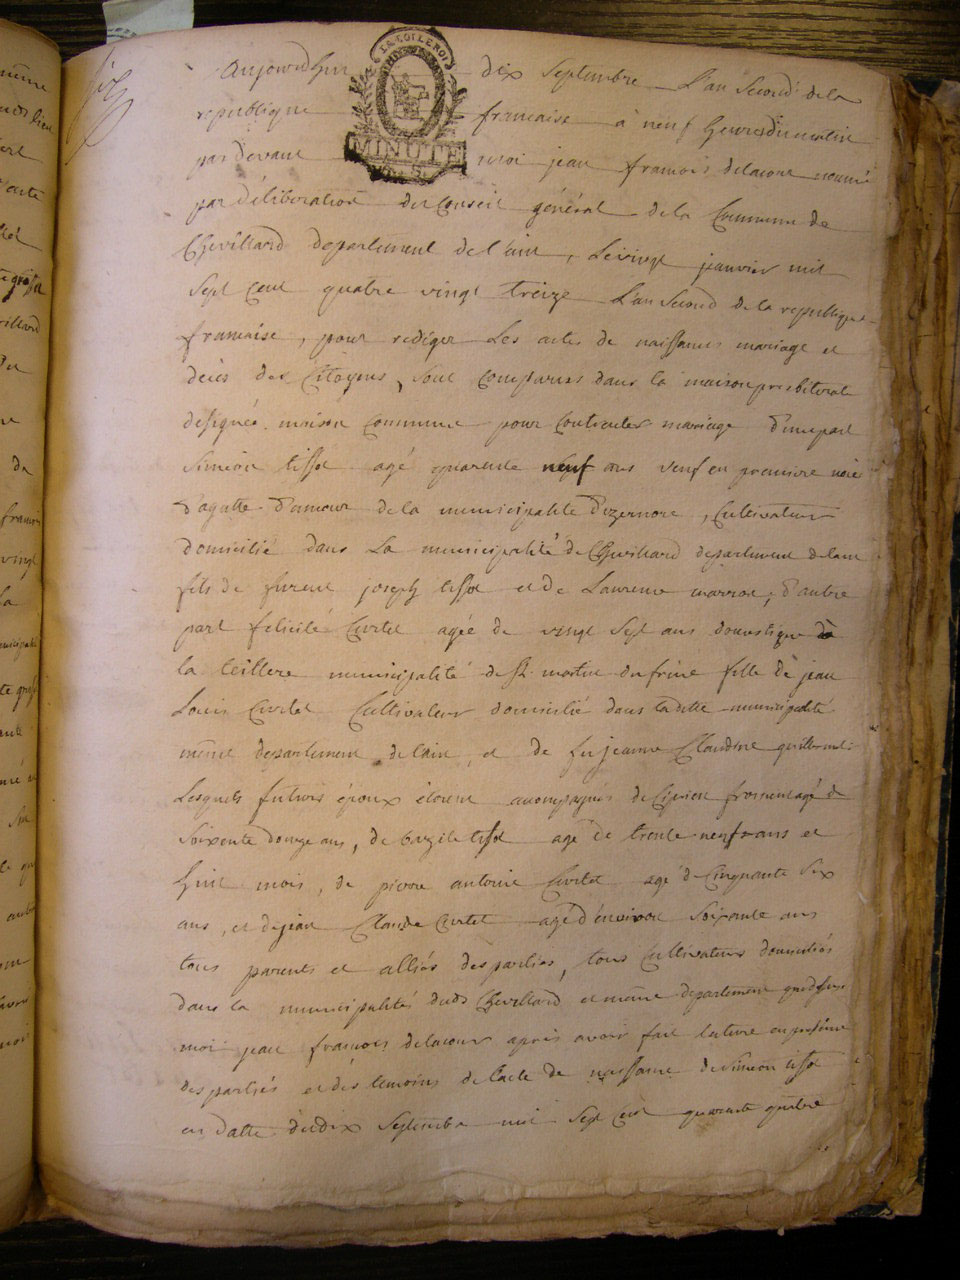 LA LOI LE ROI
MINUTE
aujourdhuy dix septembre L'an second de la
republique francaise a neuf heures du matin
par devant moi jean francois delacour nommé
par déliberation du Conseil général de la Commune de
Chevillard departement de l'ain, le vingt janvier mil
sept cent quatre vingt treize L'an second de la republique
francaise, pour rediger Les actes de naissances mariage et
décès des Citoyens, sont comparus dans la maison presbiterale
designée maison commune pour contracter mariage d'une part
Siméon tissot agé quarente neuf ans veuf en premiere
d'agatte d'amour de la municipalité d'izernore, Cultivateur
domicilié dans La municipalité de Chevillard departement de lain
fils de furent joseph tissot et de Laurence marron, d'autre
part félicité Civtel agée de vingt sept ans domestique de
la teillere municipalité de St martin du frêne fille de jean
Louis Civtel Cultivateur domicilié dans municipalité
même departement de lain, et de fu jeanne Claudine
Lesquels futurs époux étoient accompagnés de Ciprien agé de
soixente douze ans, de bazile tissot agé de trente neuf ans et
huit mois, de pierre antoine Civtel agé de Cinquante six
ans, et de jean Claude Civtel agé d'environ soixante ans
tous parents et alliés des parties, tous Cultivateurs domiciliés
dans la municipalité dudt Chevillard et même departement
moi jean francois delacour après avoir fait lecture en présence
des partiés et des témoins de l'acte de naissance de Siméon tissot
en datte du dix septembre mil sept cent quarante quatre